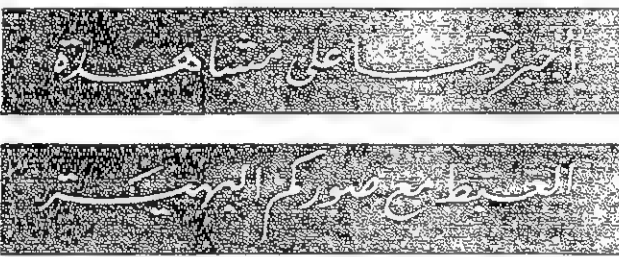 أجبرتمونا على مشاهدة
العبيط مع صوركم البهية